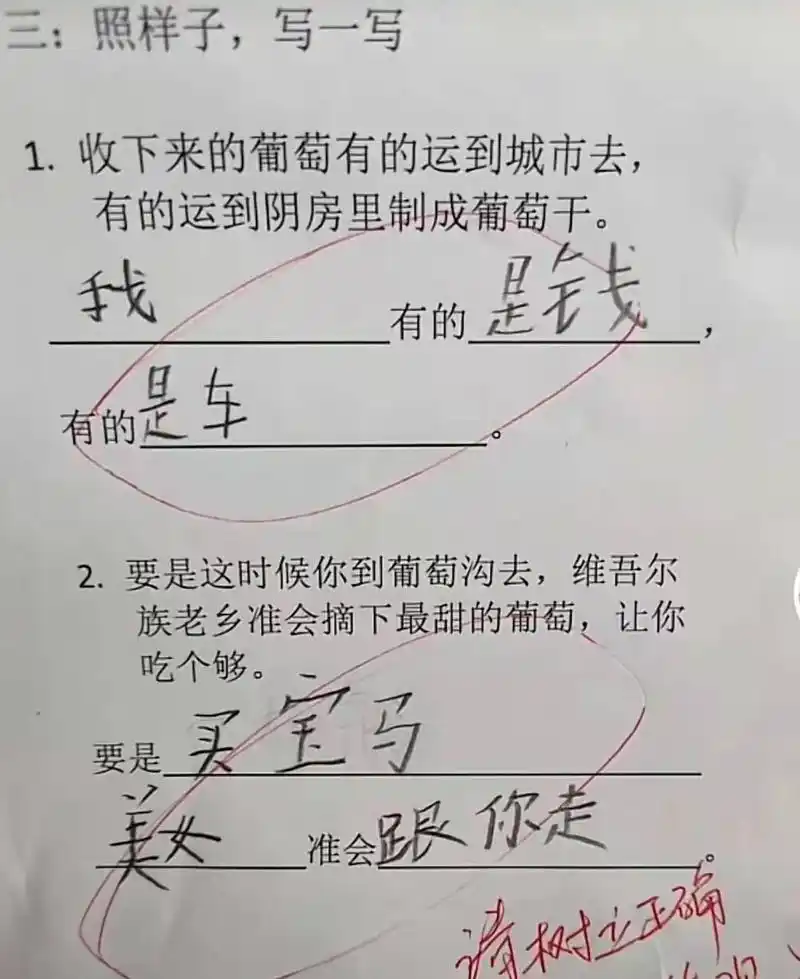 三：照样子，写一写
1. 收下来的葡萄有的运到城市去，
有的运到阴房里制成葡萄干。
我有的是钱，
有的是车。
2. 要是这时候你到葡萄沟去，维吾尔
族老乡准会摘下最甜的葡萄，让你
吃个够。
要是买宝马
美女准会跟你走。
请树立正确